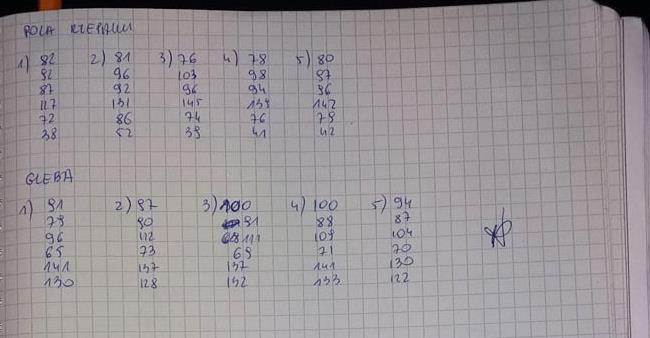 POLA RZEPAKU
1) 82 2) 81 3) 76 4) 78 5) 80
92 96 103 98 97
87 92 96 94 96
127 131 145 139 142
72 86 74 76 79
38 52 39 41 42
GLEBA
1) 91 2) 97 3) 100 4) 100 5) 94
79 90 91 88 87
96 112 111 109 104
65 73 69 71 70
141 137 137 141 130
130 128 132 133 122